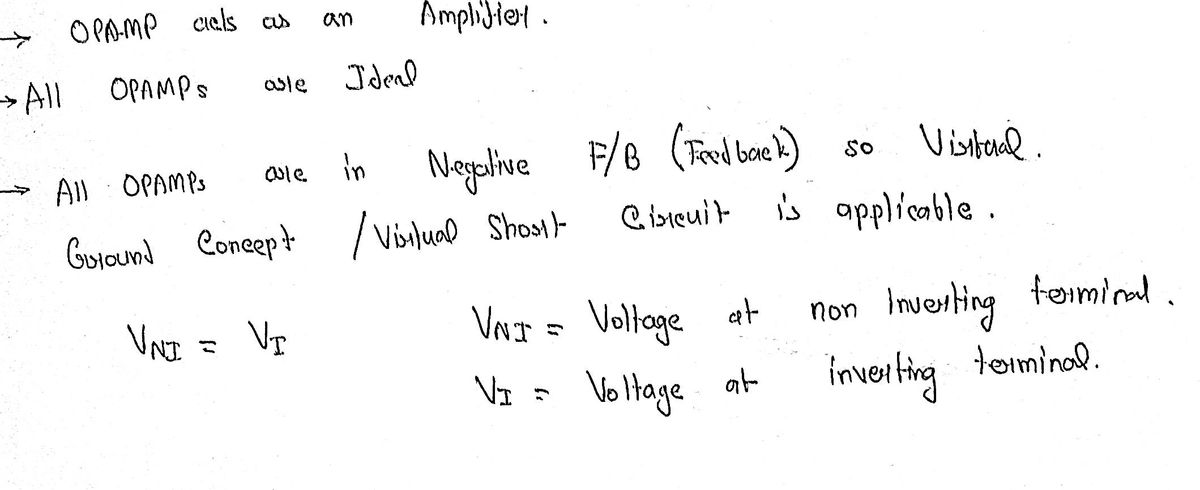 → OPAMP acts as an Amplifier.
→ All OPAMPs are Ideal
→ All OPAMPs are in Negative F/B (Feedback) so Virtual.
Ground Concept / Virtual Short Circuit is applicable.
V_NI = V_I V_NI = Voltage at non Inverting terminal.
V_I = Voltage at inverting terminal.